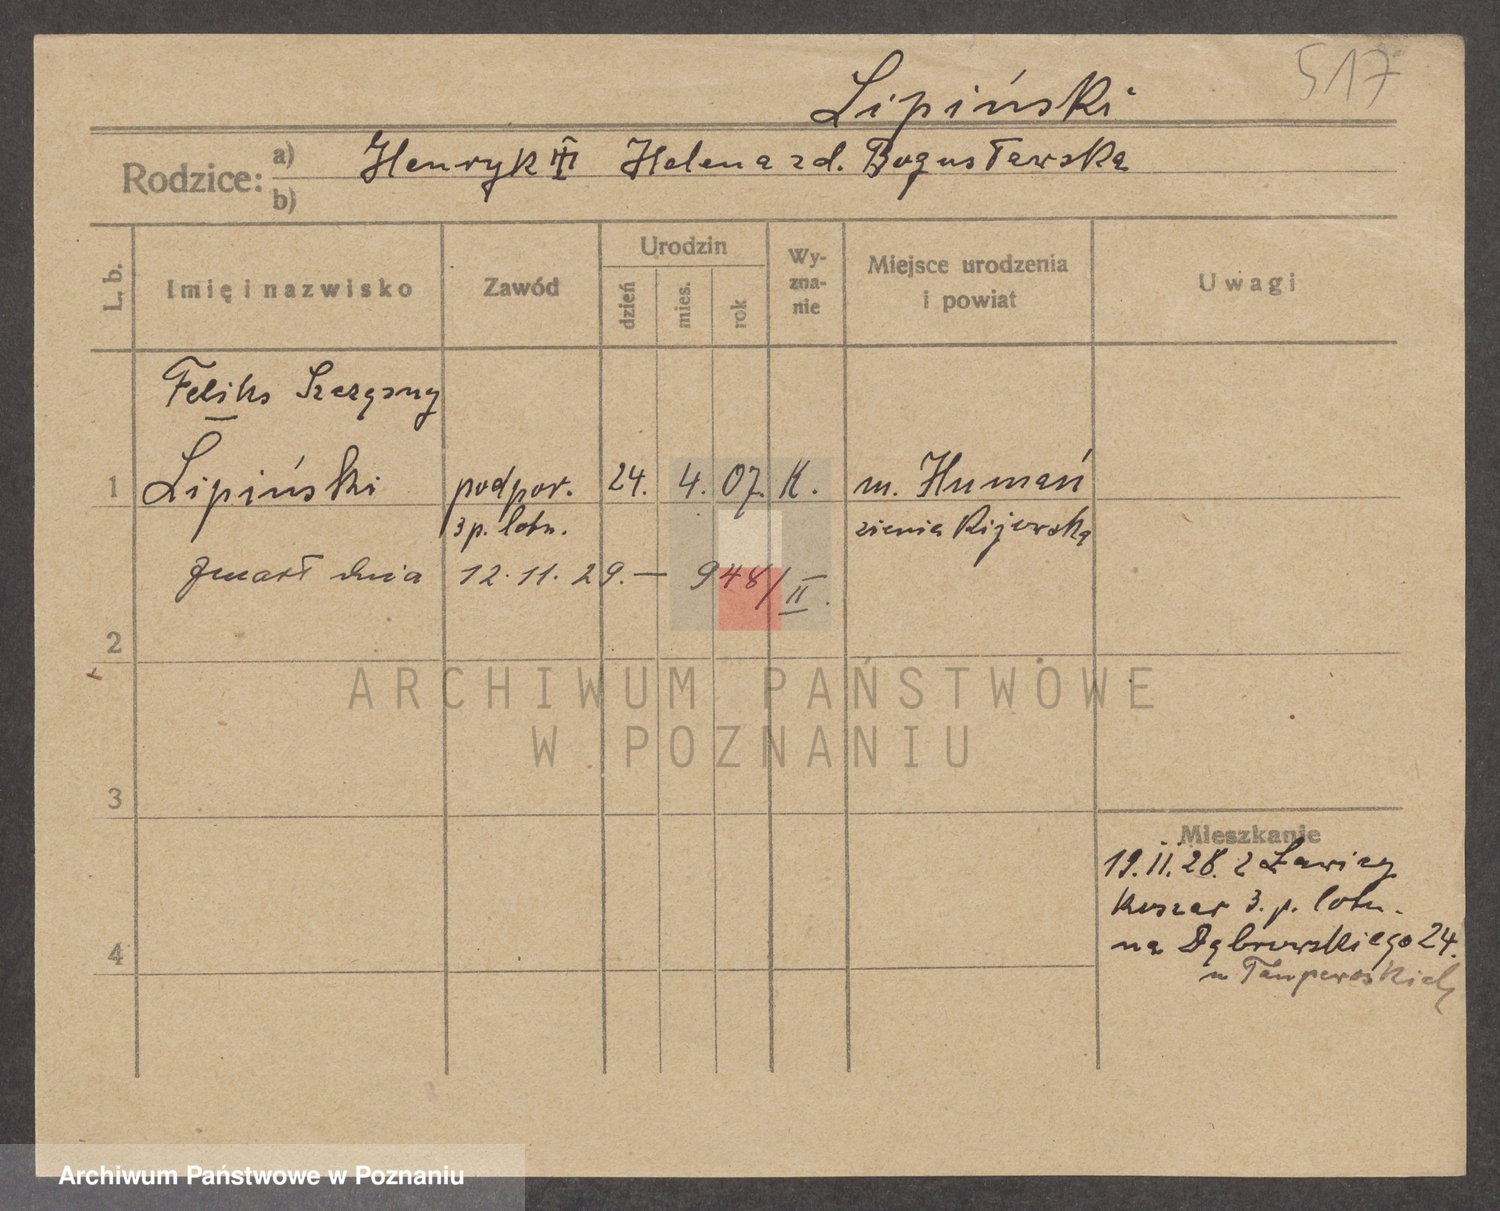 517
Lipiński
Rodzice: a) Henryk Helena z d. Bogusławska
b)
L. b.
Imię i nazwisko
Zawód
Urodzin
dzień
mies.
rok
Wy-
zna-
nie
Miejsce urodzenia
i powiat
Uwagi
Feliks Szczęsny
1 Lipiński podpor. 24. 4. 07. K. m. Humań
3 p. lotn. ziemia Kijowska
zmarł dnia 12.11.29. — 948/II.
2
ARCHIWUM PAŃSTWOWE
W POZNANIU
3
Mieszkanie
19.II.28. z Ławicy
koszar 3. p. lotn.
na Dąbrowskiego 24.
4
u
Archiwum Państwowe w Poznaniu